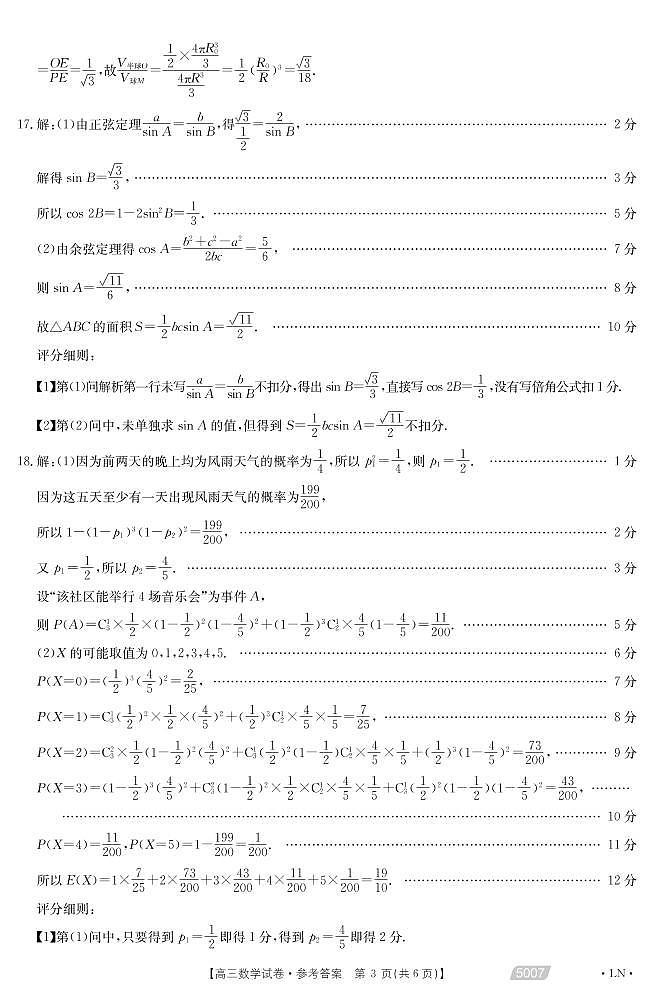 =OE/PE=1/√3,故V半球O/V球M=(1/2×4πR₀³/3)/(4πR³/3)=1/2(R₀/R)³=√3/18.
17.解:(1)由正弦定理a/sin A=b/sin B,得√3/(1/2)=2/sin B, …… 2分
解得 sin B=√3/3, …… 3分
所以 cos 2B=1-2sin²B=1/3. …… 5分
(2)由余弦定理得 cos A=(b²+c²-a²)/2bc=5/6, …… 7分
则 sin A=√11/6, …… 8分
故△ABC的面积S=1/2bcsin A=√11/2. …… 10分
评分细则:
【1】第(1)问解析第一行未写a/sin A=b/sin B不扣分,得出 sin B=√3/3,直接写 cos 2B=1/3,没有写倍角公式扣1分.
【2】第(2)问中,未单独求 sin A 的值,但得到 S=1/2bcsin A=√11/2不扣分.
18.解:(1)因为前两天的晚上均为风雨天气的概率为1/4,所以 p₁²=1/4,则 p₁=1/2. …… 1分
因为这五天至少有一天出现风雨天气的概率为199/200,
所以 1-(1-p₁)³(1-p₂)²=199/200, …… 2分
又 p₁=1/2,所以 p₂=4/5. …… 3分
设“该社区能举行4场音乐会”为事件A,
则 P(A)=C₃¹×1/2×(1-1/2)²(1-4/5)²+(1-1/2)³C₂¹×4/5(1-4/5)=11/200. …… 5分
(2)X 的可能取值为 0,1,2,3,4,5. …… 6分
P(X=0)=(1/2)³(4/5)²=2/25, …… 7分
P(X=1)=C₃¹(1/2)²×1/2×(4/5)²+(1/2)³C₂¹×4/5×1/5=7/25, …… 8分
P(X=2)=C₃²×1/2(1-1/2)²(4/5)²+C₃¹(1/2)²(1-1/2)C₂¹×4/5×1/5+(1/2)³(1-4/5)²=73/200, …… 9分
P(X=3)=(1-1/2)³(4/5)²+C₃²(1-1/2)²×1/2×C₂¹×4/5×1/5+C₃¹(1/2)²(1-1/2)(1-4/5)²=43/200, ……
…… 10分
P(X=4)=11/200,P(X=5)=1-199/200=1/200. …… 11分
所以 E(X)=1×7/25+2×73/200+3×43/200+4×11/200+5×1/200=19/10. …… 12分
评分细则:
【1】第(1)问中,只要得到 p₁=1/2即得1分,得到 p₂=4/5即得2分.
【高三数学试卷·参考答案 第 3 页(共 6 页)】 5007 ·LN·